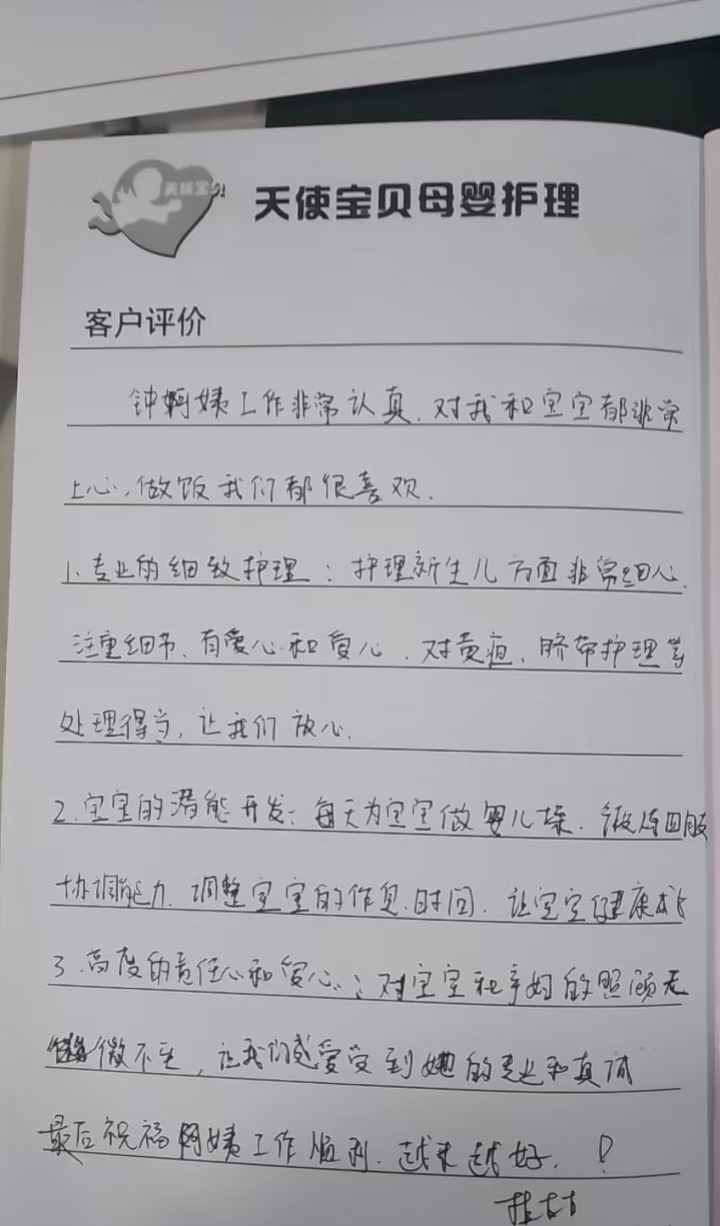 天使宝
天使宝贝母婴护理
客户评价
钟婀姨工作非常认真.对我和宝宝都非常
上心,做饭我们都很喜欢.
1.专业的细致护理:护理新生儿方面非常细心.
注重细节、有爱心和爱心.对黄疸、脐带护理等
处理得当,让我们放心.
2.宝宝的潜能开发:每天为宝宝做婴儿操.锻炼四肢
协调能力.调整宝宝的作息.时间.让宝宝健康成
3.高度的责任心和爱心.:对宝宝和产妇的照顾无
微不至,让我们感受到她的专业和真诚
最后祝福阿姨工作顺利.越来越好.!